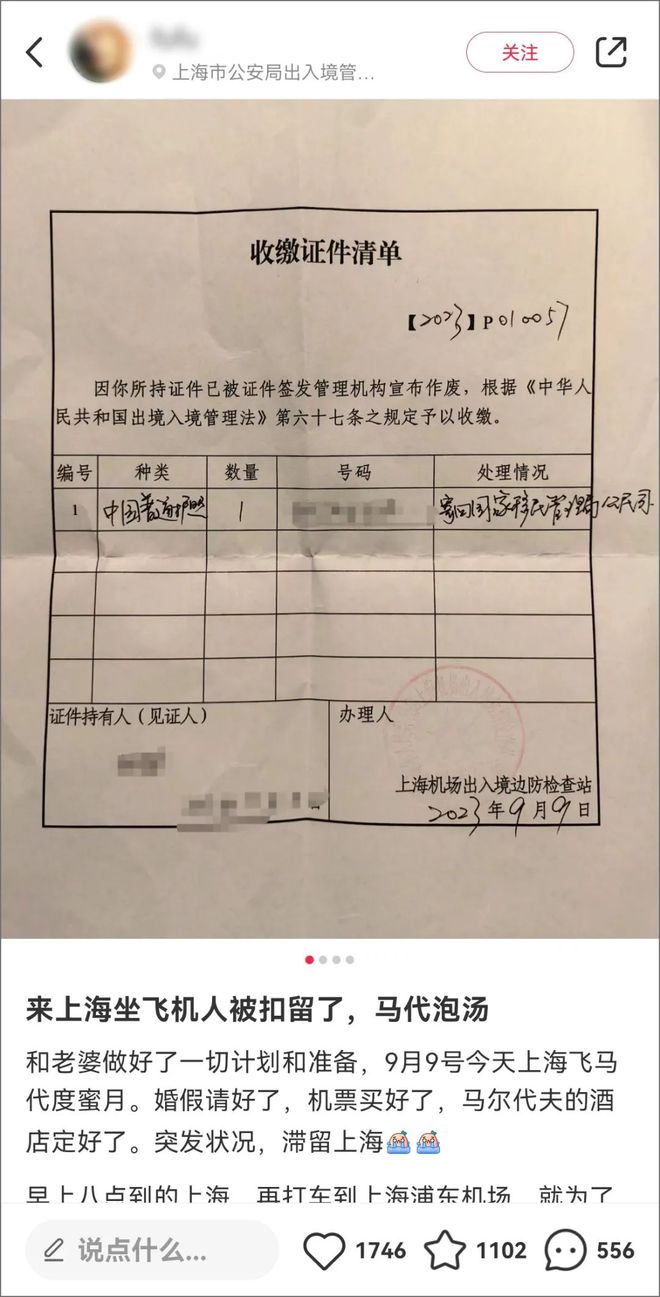 上海市公安局出入境管...
关注
收缴证件清单
【2023】P010057
因你所持证件已被证件签发管理机构宣布作废，根据《中华人
民共和国出境入境管理法》第六十七条之规定予以收缴。
编号 种类 数量 号码 处理情况
1 中国普通护照 1 寄回国家移民管理局公民司
证件持有人（见证人）
办理人
上海机场出入境边防检查站
2023年9月9日
来上海坐飞机人被扣留了，马代泡汤
和老婆做好了一切计划和准备，9月9号今天上海飞马
代度蜜月。婚假请好了，机票买好了，马尔代夫的酒
店定好了。突发状况，滞留上海
早上八点到的上海，再打车到上海浦东机场，就为了
说点什么...
1746
1102
556